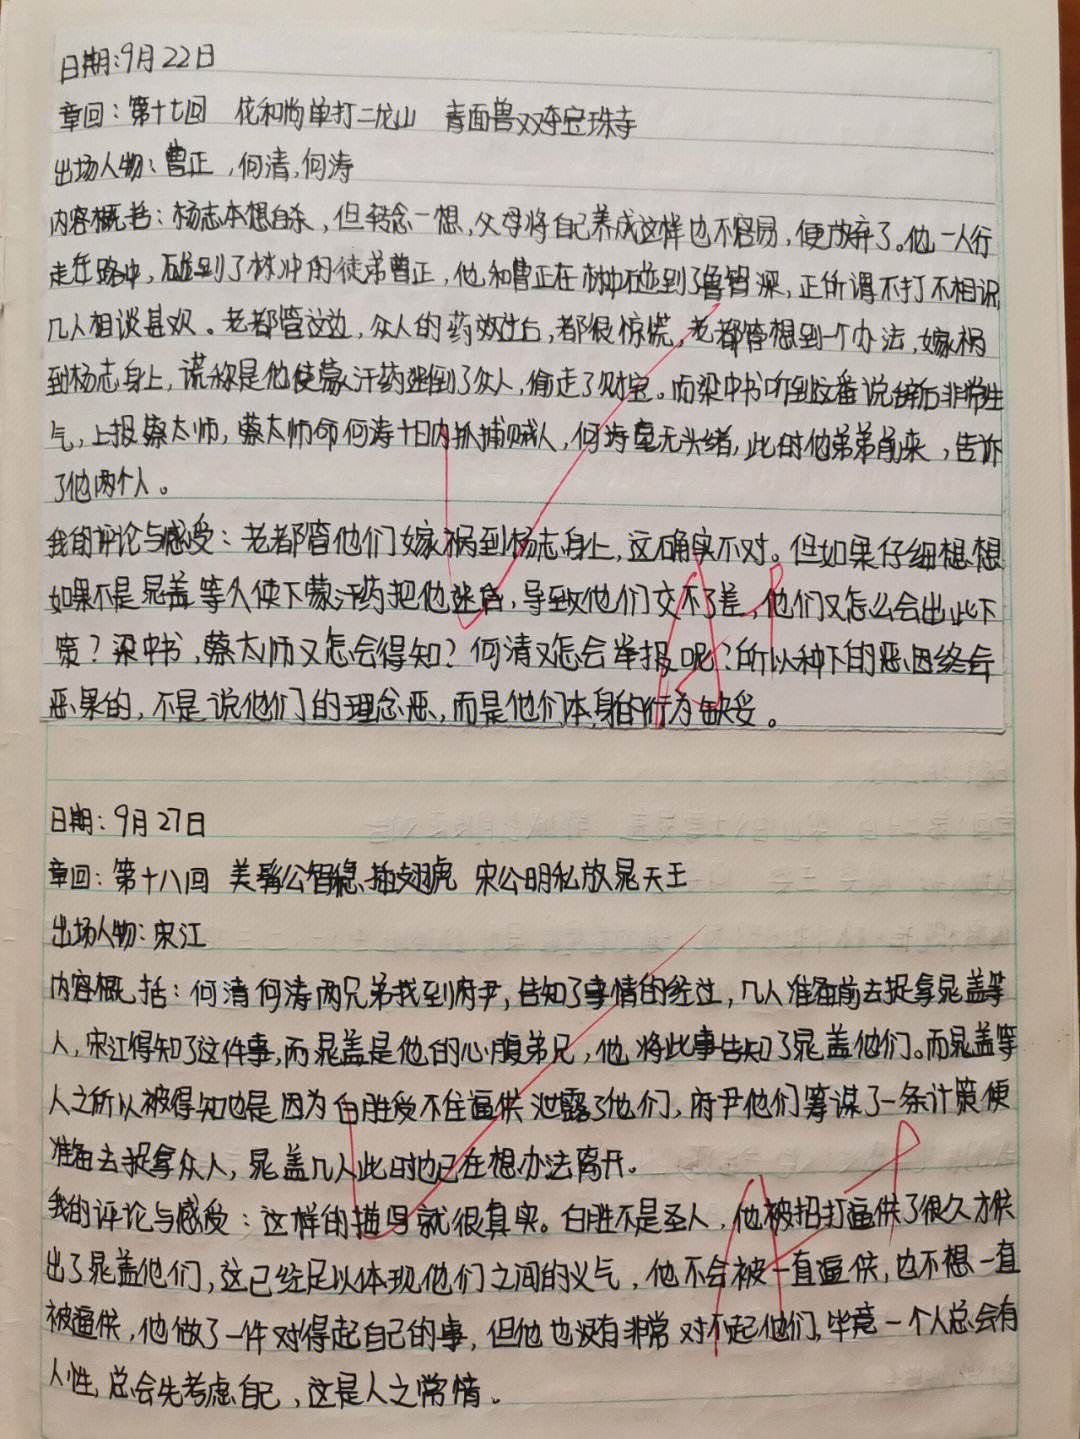 日期:9月22日
章回：第十七回 花和尚单打二龙山 青面兽双夺宝珠寺
出场人物：曹正，何清，何涛
内容概括：杨志本想自杀，但转念一想，父母将自己养成这样也不容易，便放弃了。他一人行
走在路中，碰到了林冲的徒弟曹正，他和曹正在林中碰到了鲁智深，正所谓不打不相识，
几人相谈甚欢。老都管这边，众人的药效过后，都很惊慌，老都管想到一个办法，嫁祸
到杨志身上，谎称是他使蒙汗药迷倒了众人，偷走了财宝。而梁中书听到这番说辞后非常生
气，上报蔡太师，蔡太师命何涛十日内抓捕贼人，何涛毫无头绪，此时他弟弟前来，告诉
了他两个人。
我的评论与感受：老都管他们嫁祸到杨志身上，这确实不对。但如果仔细想想
如果不是晁盖等人使下蒙汗药把他迷倒，导致他们交不了差，他们又怎么会出此下
策？梁中书，蔡太师又怎会得知？何清又怎会举报呢？所以种下的恶因终会
恶果的，不是说他们的理念恶，而是他们本身的行为缺妥。
日期：9月27日
章回：第十八回 美髯公智稳插翅虎 宋公明私放晁天王
出场人物：宋江
内容概括：何清何涛两兄弟找到府尹，告知了事情的经过，几人准备前去捉拿晁盖等
人，宋江得知了这件事，而晁盖是他的心腹弟兄，他将此事告知了晁盖他们。而晁盖等
人之所以被得知也是因为白胜受不住逼供泄露了他们，府尹他们筹谋了一条计策便
准备去捉拿众人，晁盖几人此时也已在想办法离开。
我的评论与感受：这样的描写就很真实。白胜不是圣人，他被招打逼供了很久才供
出了晁盖他们，这已经足以体现他们之间的义气，他不会被一直逼供，也不想一直
被逼供，他做了一件对得起自己的事，但他也没有非常对不起他们，毕竟一个人总会有
人性，总会先考虑自己，这是人之常情。